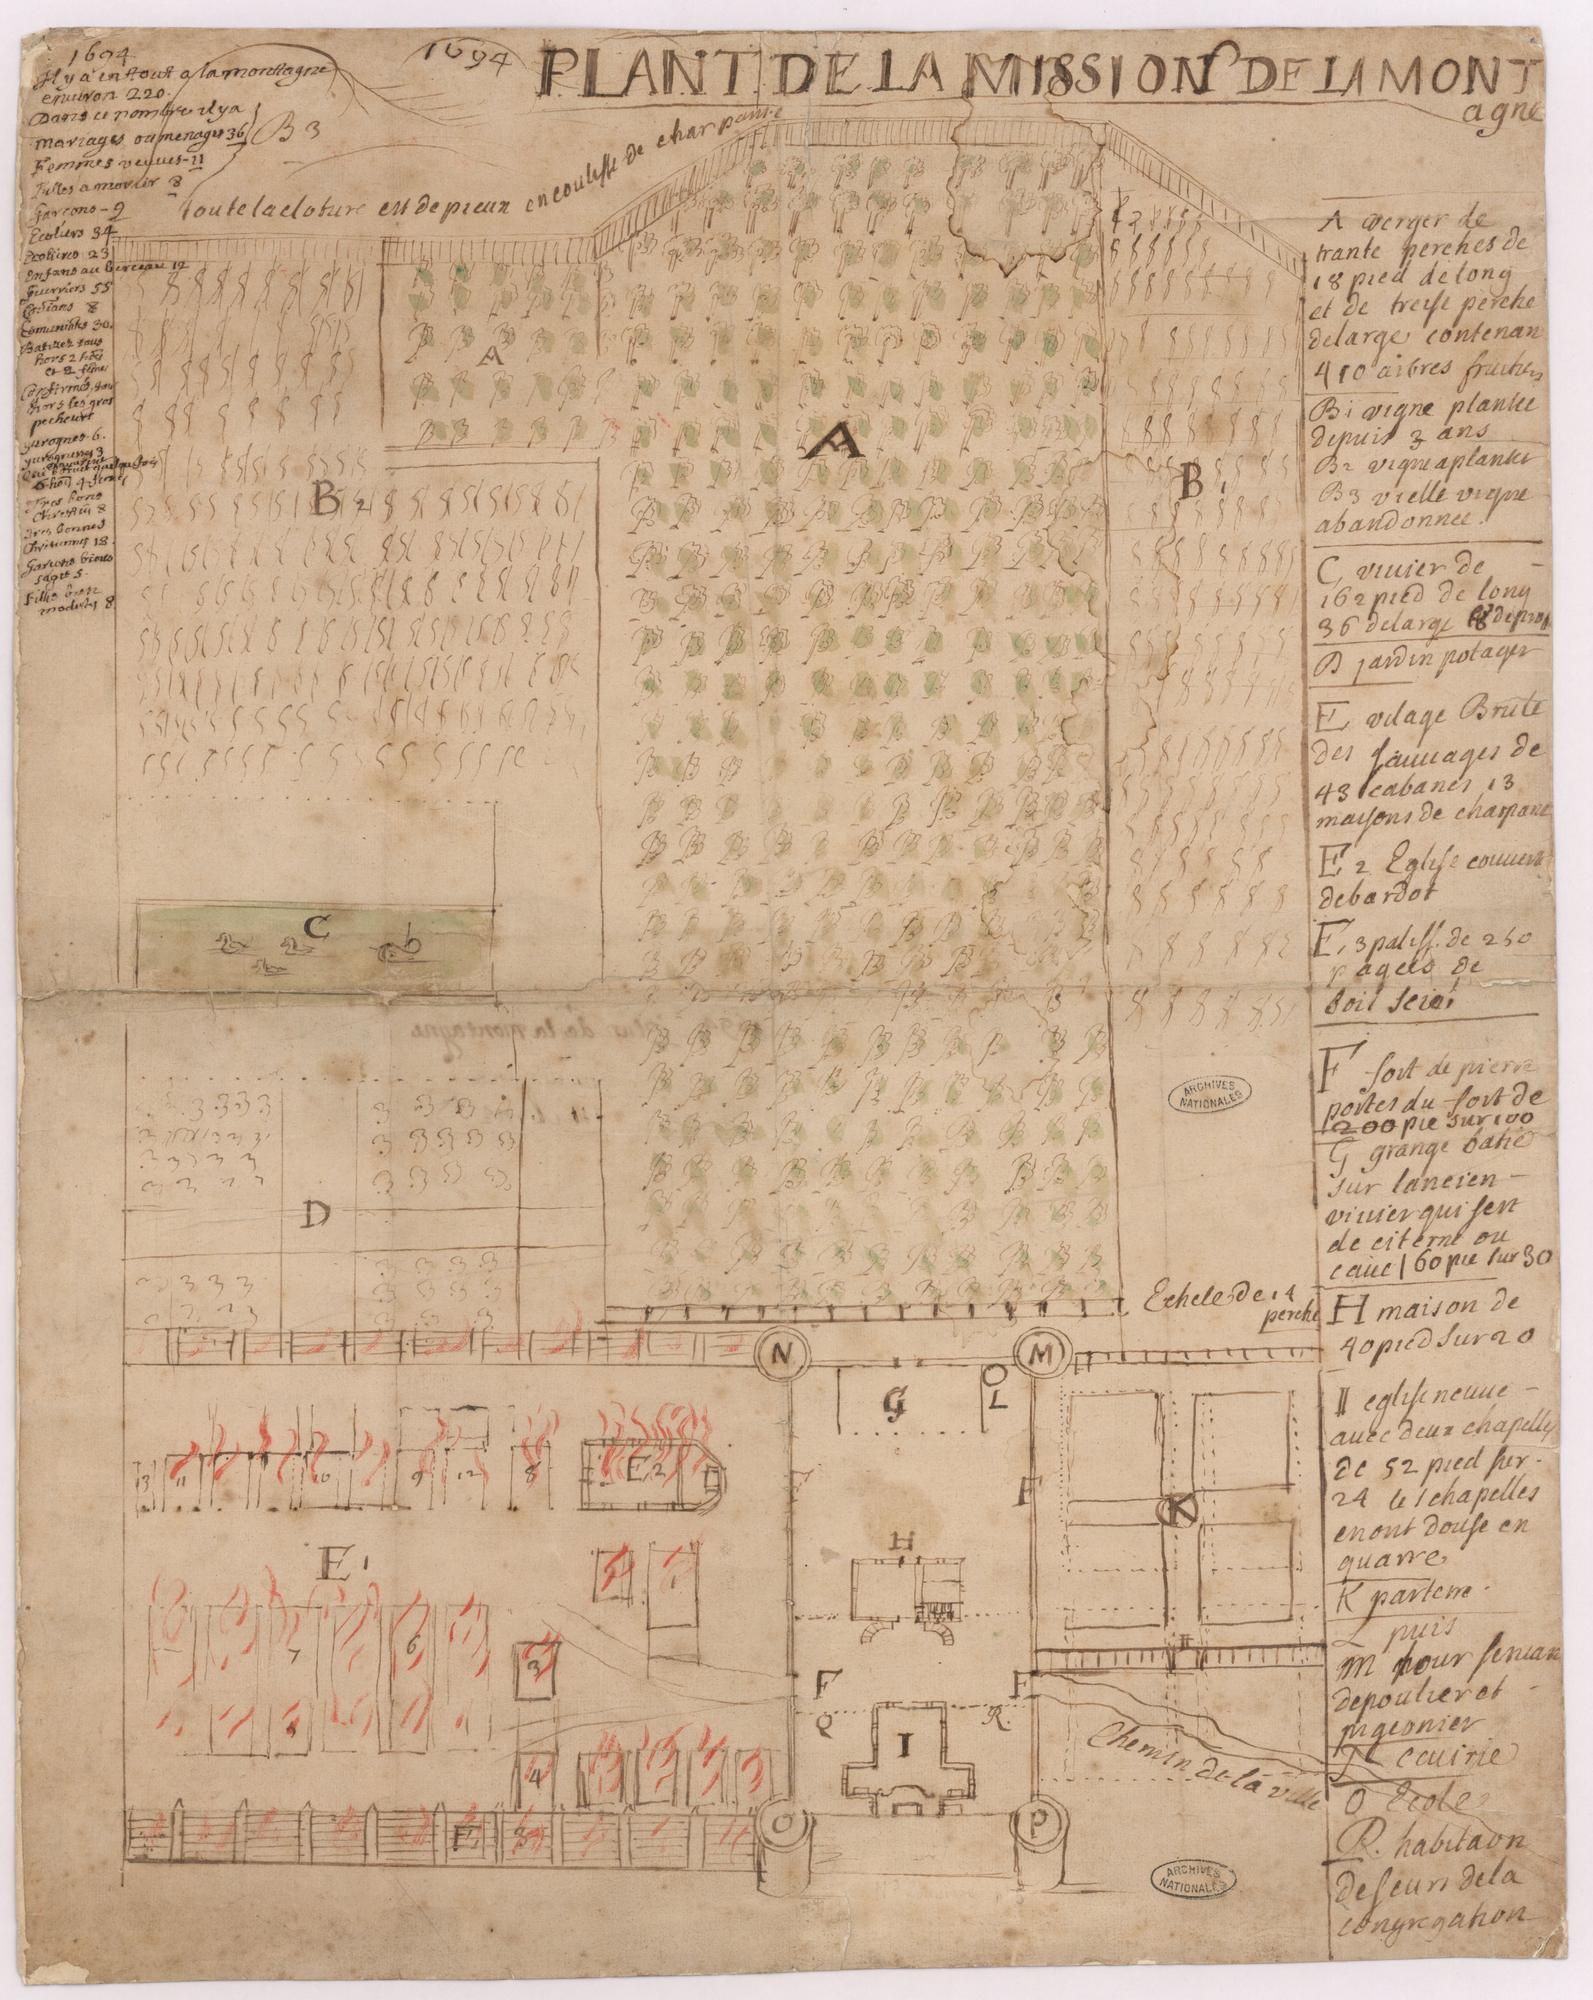 1694
PLANT DE LA MISSION DE LA MONT
agne
1694
il y a en tout a la montagne
environ 220.
Dans ce nombre il y a
mariages ou menages 36
Femmes veuves - 11
filles a marier 8
Garcons - 9
Ecoliers 34
Ecolieres 23
enfans au berceau 12
Guerriers 55
8
Comunians 30.
Batisez tous
hors 2
et 2
Confirmés
hors les gros
pecheurs
yvrognes 6.
3
Tres bons
Chrestiens 8
tres bonnes
Chretiennes 18
Garcons biens
sages 5.
Filles bien
modestes 8
B 3
toute la cloture est de pieux en coulisse de charpante
A
A
B 2
B 1
C
D
Echele de 14
perche
N
M
G
L
F
K
H
E 2
13
11
10
9
12
8
E 1
1
7
6
5
3
4
F
F
Q
R.
I
Chemin de la ville
O
P
E 3
A verger de
trante perches de
18 pied de long
et de treise perche
de large contenan
410 arbres fruitiers
B1 vigne plantee
depuis 3 ans
B2 vigne a planter
B3 vielle vigne
abandonnee.
C vivier de
162 pied de long
36 de large 8 de prof
D jardin potager
E vilage Brute
des sauvages de
43 cabanes 13
maisons de charpante
E 2 Eglise couverte
de bardot
E, 3 paliss. de 250
de
boil
F fort de pierre
portes du fort de
200 pie sur 100
G grange batie
sur lancien
vivier qui sert
de citerne ou
cave 160 pie sur 30
H maison de
40 pied sur 20
II eglise neuve
avec deux chapelles
de 52 pied sur
24 les chapelles
en ont douse en
quarre,
K parterre
L puis
M tour servan
de poulier et
pigeonier
ecuirie
O Ecole
R. habitaon
de seurs de la
congregation
ARCHIVES
NATIONALES
ARCHIVES
NATIONALES